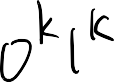 0^k 1^k